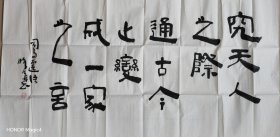 究天人
之際
通古今
之變
成一家
之言
司馬遷
HONOR Magic4